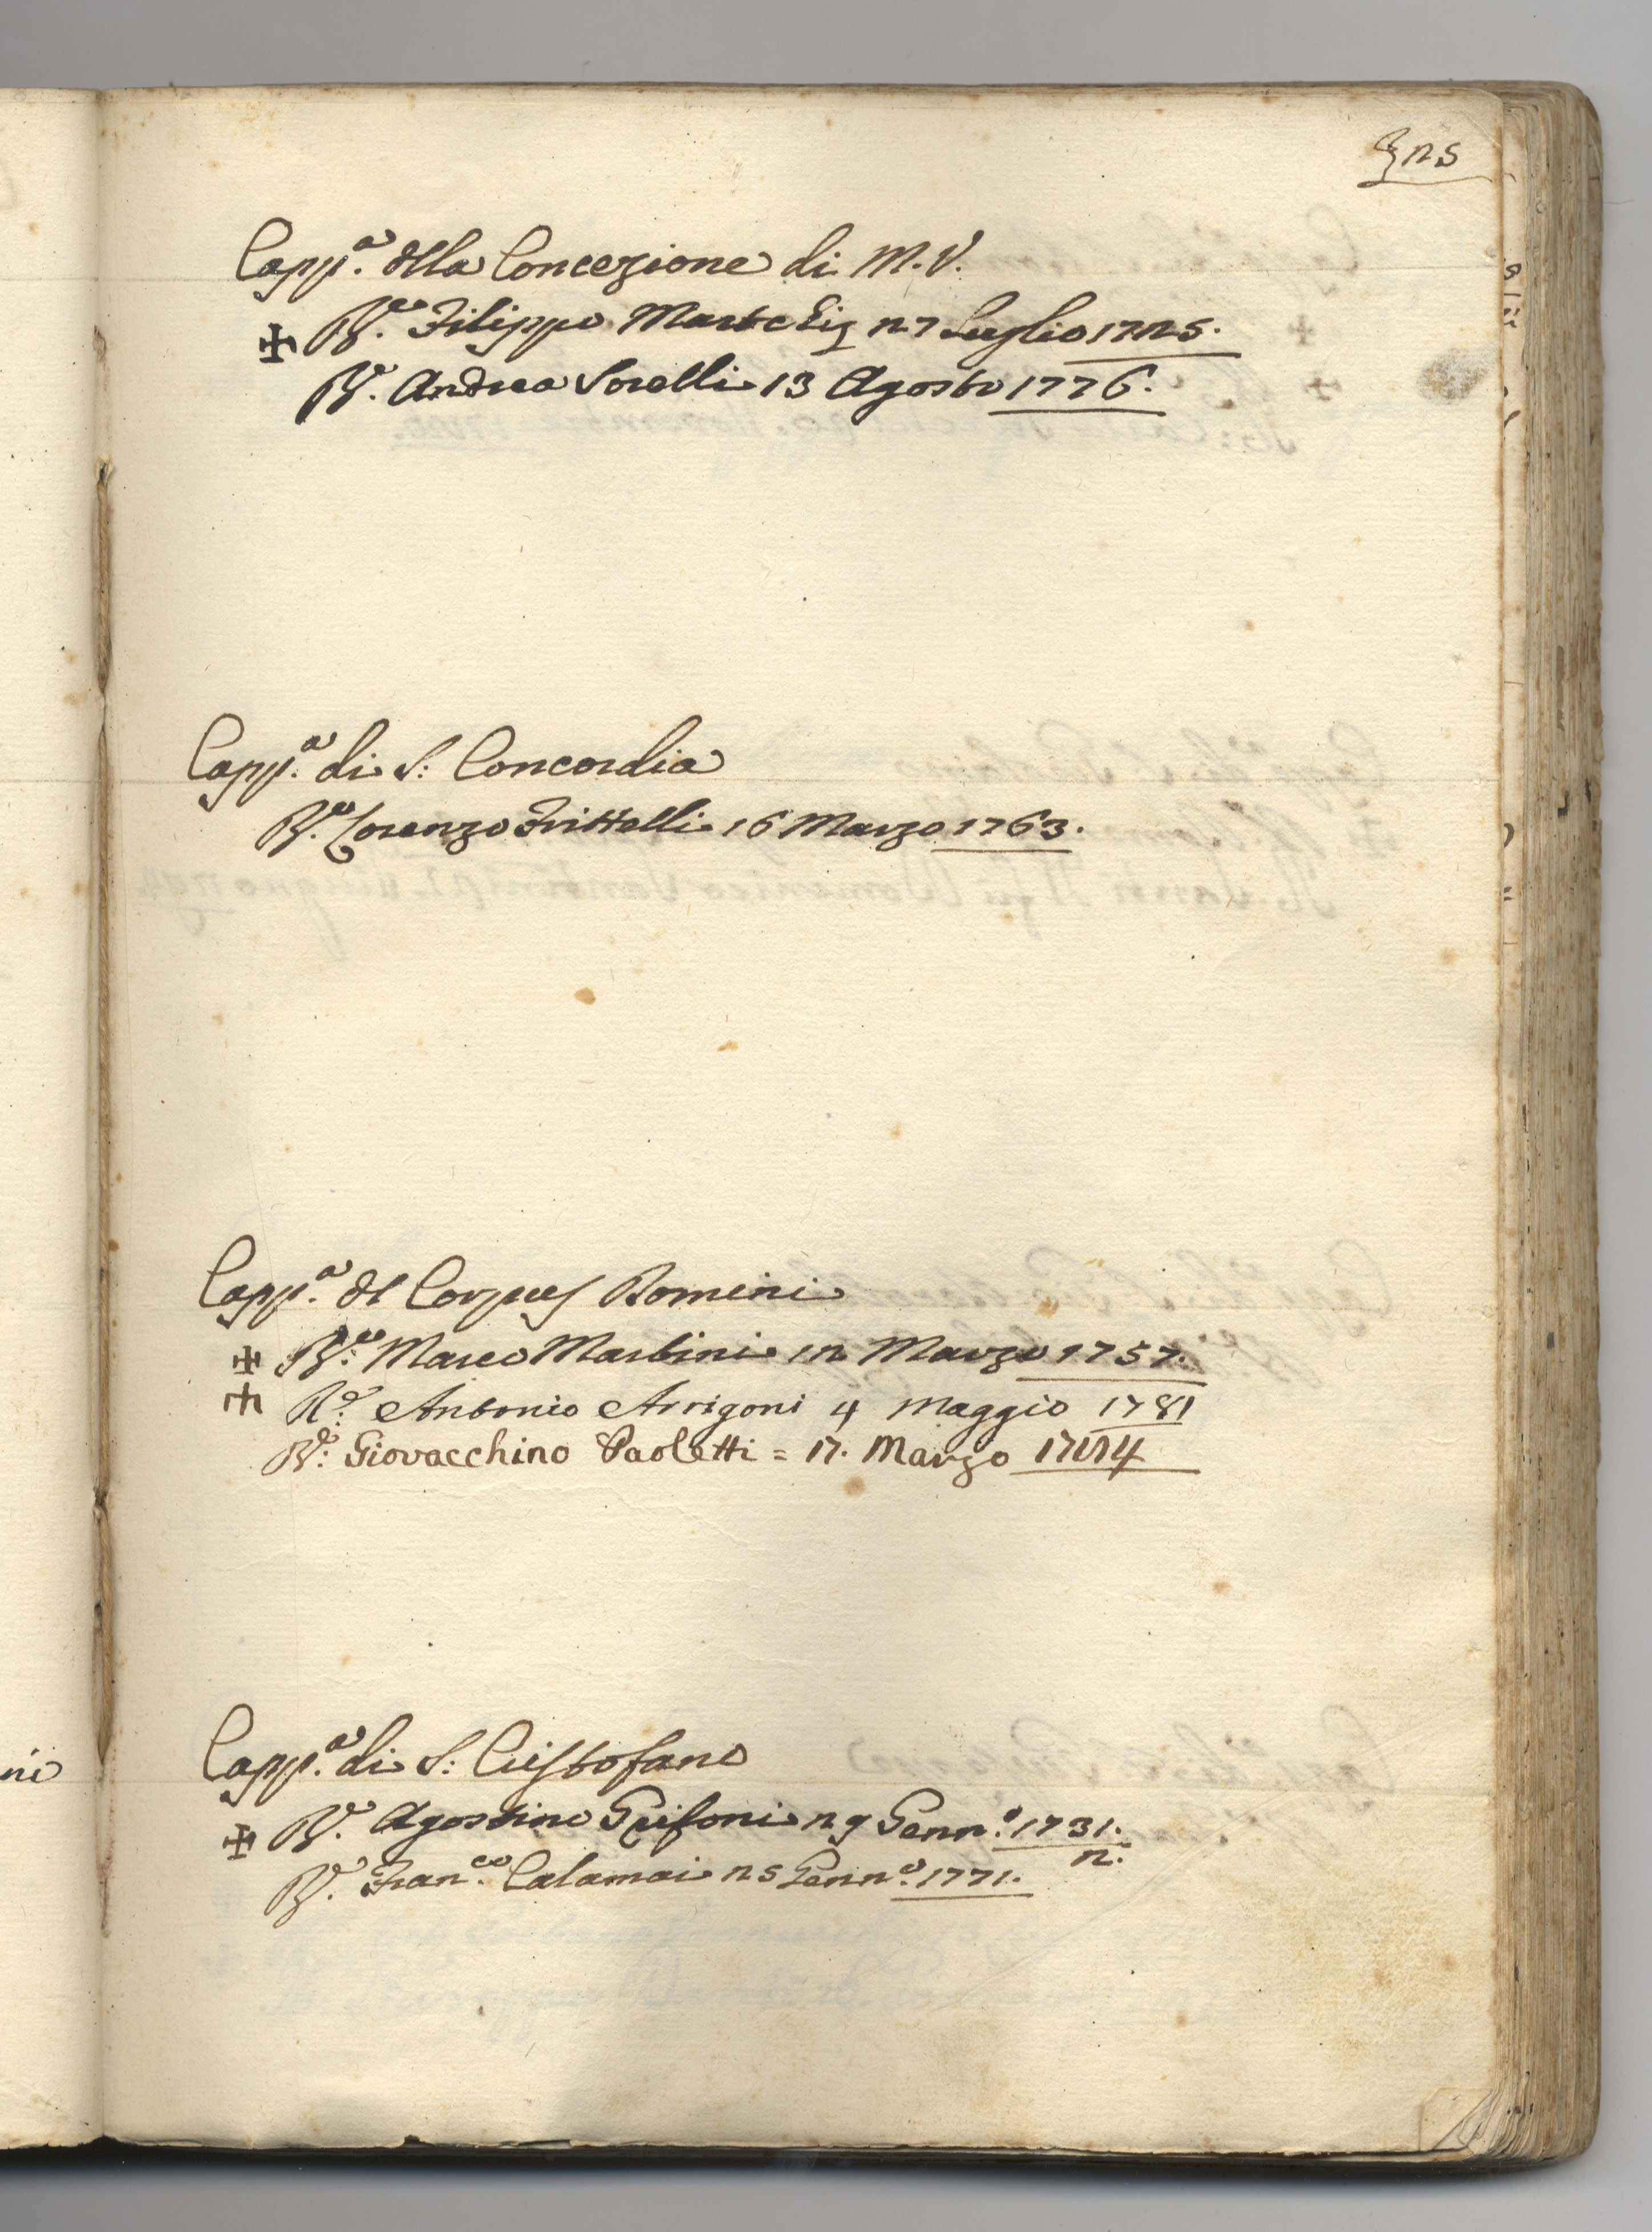 325
Capp.a della Concezione di M.V.
✠ R.do Filippo Martelli 27 Luglio 1725.
R.do Andrea Sorelli 13 Agosto 1776.
Capp.a di S: Concordia
R.do Lorenzo Frittelli 16 Marzo 1763.
Capp.a del Corpus Domini
✠ R.do Marco Martini 12 Marzo 1757.
✠ R.do Antonio Arrigoni 4 Maggio 1781
R.do Giovacchino Paoletti = 17. Marzo
Capp.a di S: Cristofano
✠ R.do Agostino Grifoni 29 Genn.o 1731.
2.
R.do Fran.co Calamai 25 Genn.o 1771.
ni